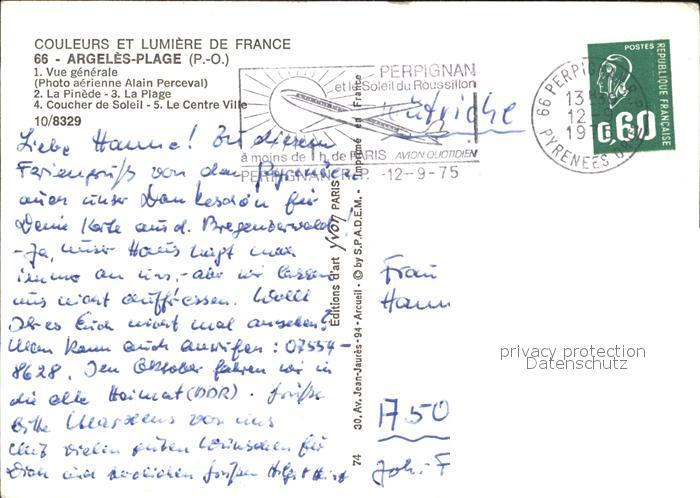 COULEURS ET LUMIÈRE DE FRANCE
66 - ARGELÈS-PLAGE (P.-O.)
1. Vue générale
(Photo aérienne Alain Perceval)
2. La Pinède - 3. La Plage
4. Coucher de Soleil - 5. Le Centre Ville
10/8329
PERPIGNAN
et le Soleil du Roussillon
à moins de 1 h. de PARIS AVION QUOTIDIEN
PERPIGNAN R.P. -12-9-75
66 PERPIGNAN R.P.
12-9
PYRENEES OR.
POSTES
REPUBLIQUE FRANÇAISE
0,60
Autriche
Liebe Hanne! Zu diesem
Feriengruß von den Pyrenäen
auch unser Dankeschön für
Deine Karte aus d. Bregenzerwald.
- Ja, unser Haus nagt zwar
immer an uns, - aber wir lassen
uns nicht auffressen. Wollt
Ihr es Euch nicht mal ansehen?
Man kann auch anrufen: 07554-
8628. Im Oktober fahren wir in
die alte Heimat (DDR). Grüße
bitte von uns
Mit vielen guten Wünschen für
Dich und herzlichen Grüßen
Editions d'art yvon PARIS Imprimé en France
30, Av. Jean-Jaurès - 94 - Arcueil - © by S.P.A.D.E.M. -
74
Frau
Hann
1750
Joh.-F
privacy protection
Datenschutz